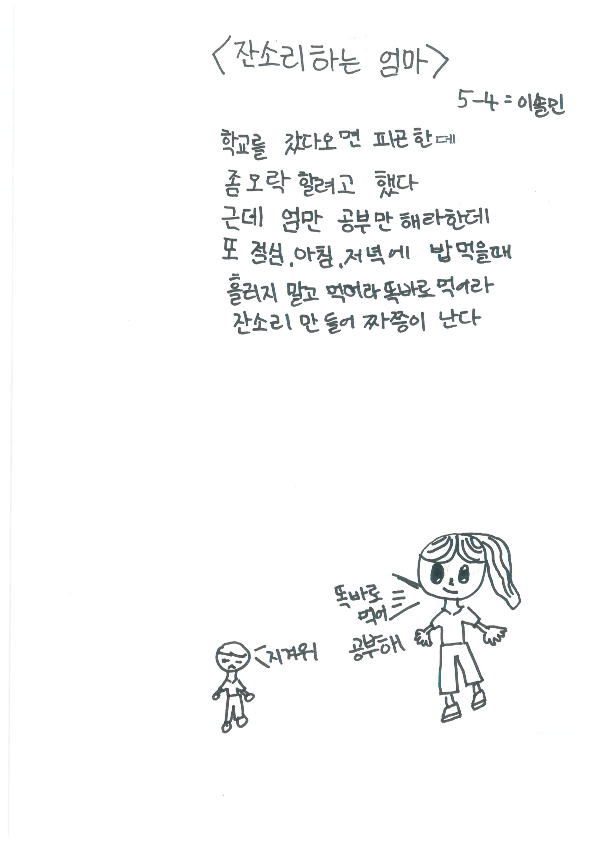 <잔소리하는 엄마>
5-4=이솔민
학교를 갔다오면 피곤한데
좀 오락 할려고 했다
근데 엄만 공부만 해라한데
또 점심,아침,저녁에 밥먹을때
흘러지 말고 먹어라 똑바로 먹어라
잔소리 만 들어 짜쯩이 난다
똑바로
먹어
공부해
지겨워